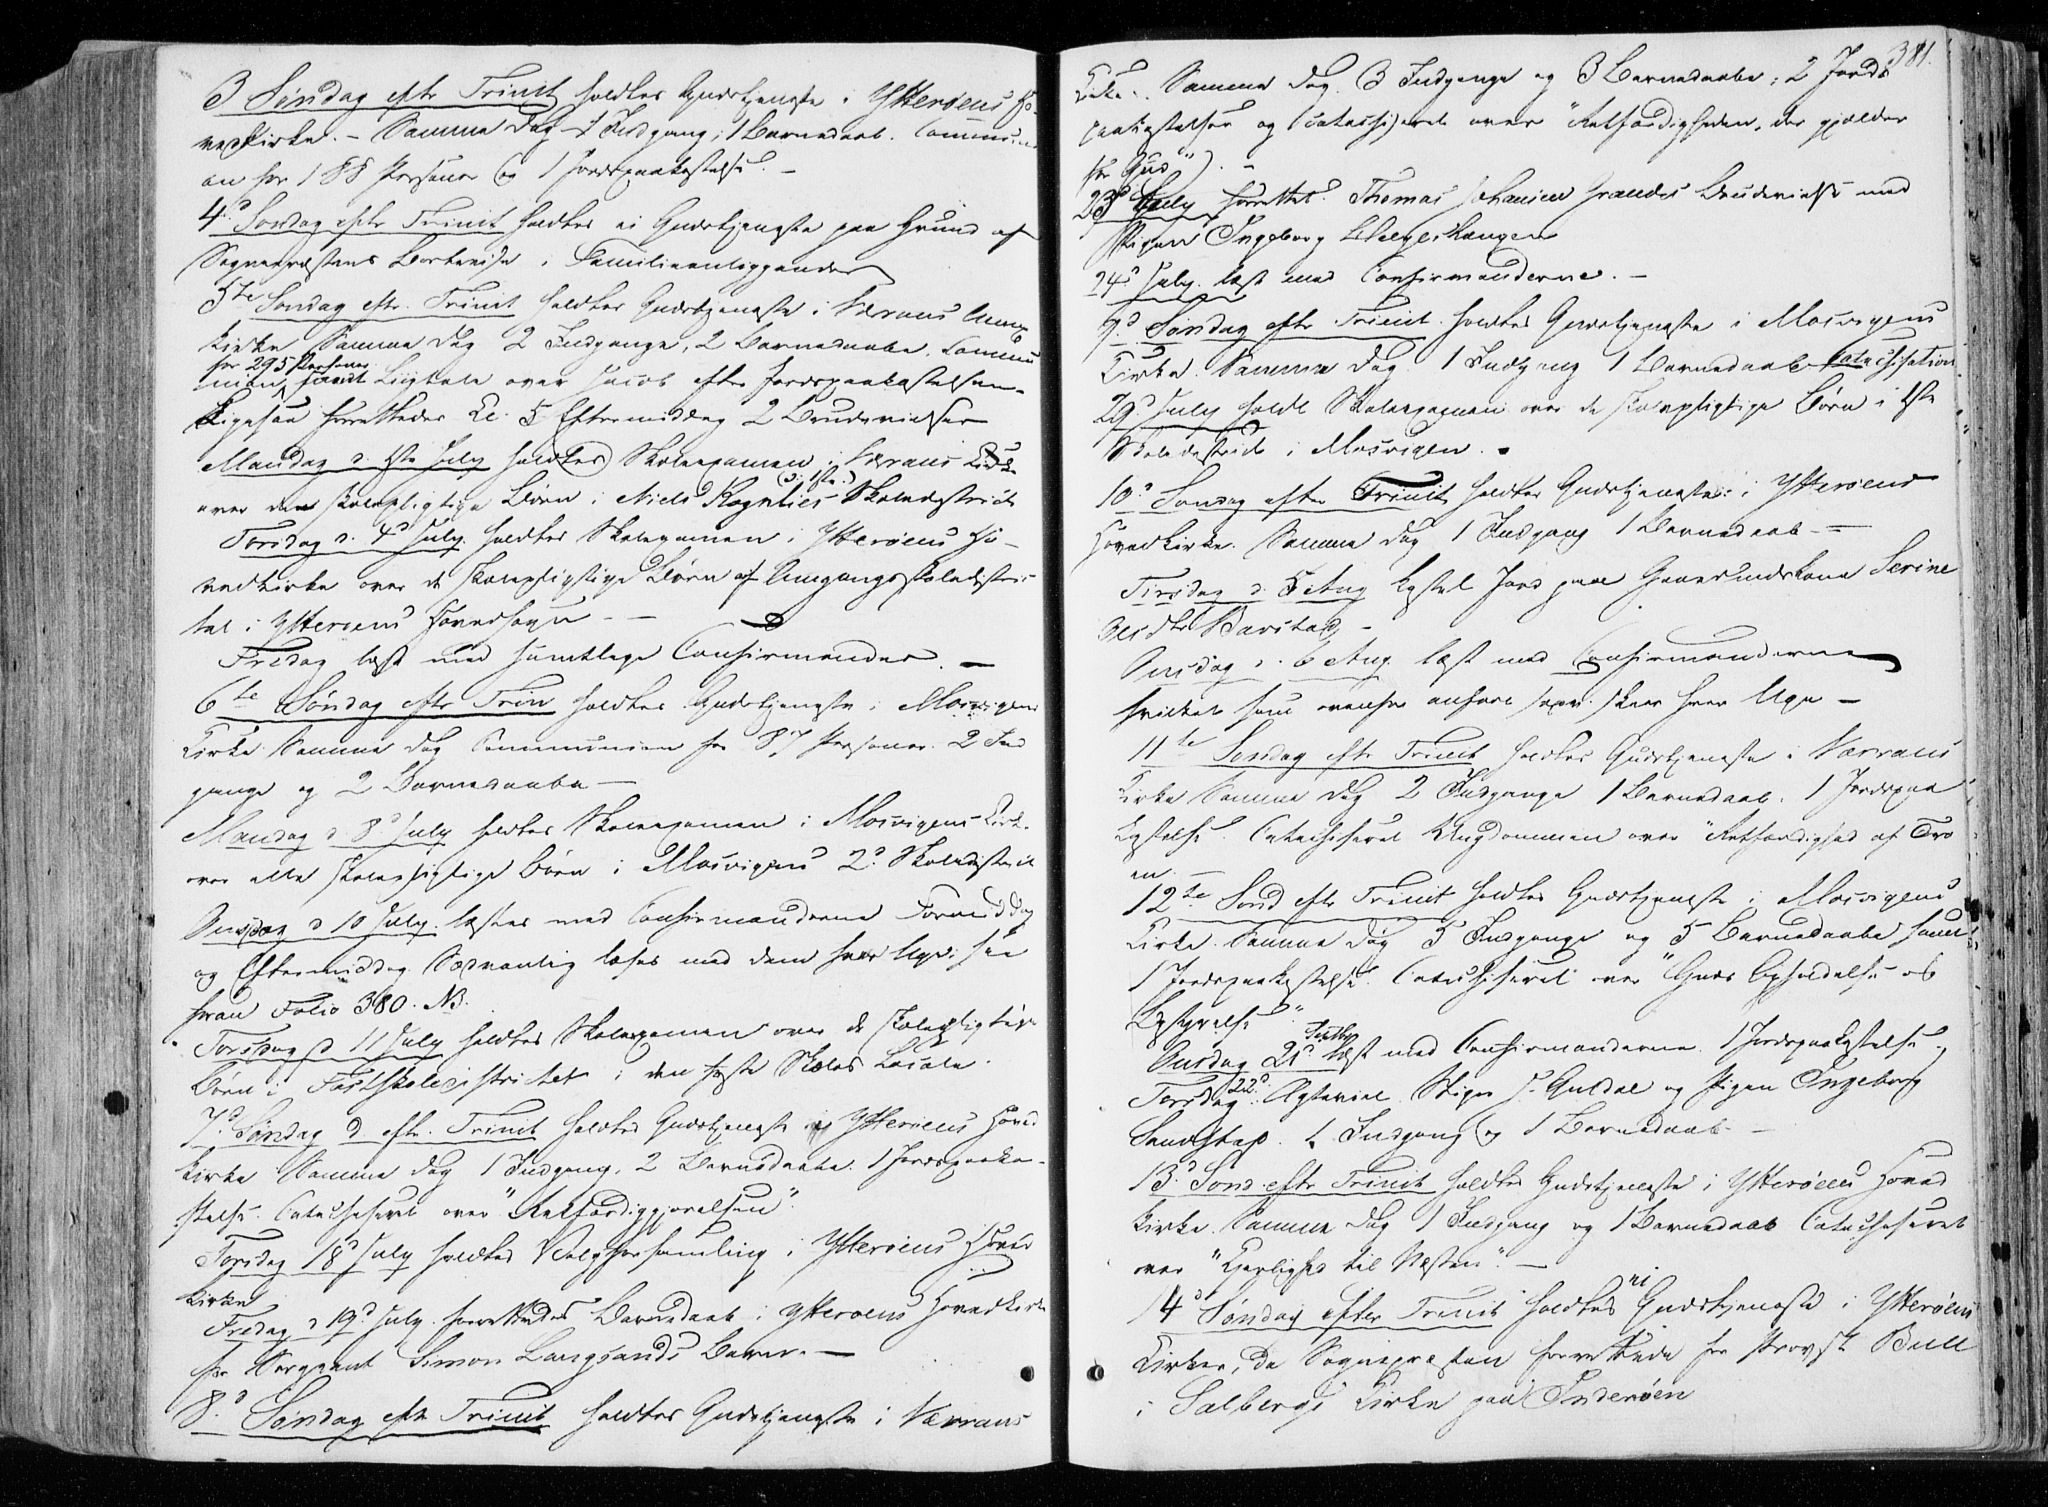 3 Søndag efter Trinit holdtes Gudstjeneste i Ytterøens Ho-
vedkirke. - Samme Dag 1 Indgang; 1 Barnedaab. Communi-
on for 188 Personer og 1 Jordpaakastelse. -
4d Søndag efter Trinit holdtes ei Gudstjeneste paa Grund af
Sognepræstens Bortreise i Familieanliggender
5te Søndag eftr. Trinit holdtes Gudstjeneste i Værrans Annex
Kirke Samme Dag 2 Indgange, 2 Barnedaabe, Commu
for 295 Personer
nion, samt Liigtale over Jacob efter Jordpaakastelsen
Ligesaa forrettedes Kl. 5 Eftermiddag 2 Brudevielser
Mandag d. 1ste July holdtes Skoleexamen i Værrans Kirke
(d: 1ste)
over den skolepligtige Børn i Niels Rognlies Skoledistrict
Torsdag d. 4d July holdtes Skoleexamen i Ytterøens Ho-
vedkirke over de skolepligtige Børn af Omgangsskoledistric-
tet i Ytterøens Hovedsogn - -
Fredag læst med samtlige Confirmander. -
6te Søndag eftr Trin holdtes Gudstjeneste i Mosvigens
Kirke Samme Dag Communion for 87 Personer. 2 Ind
gange og 2 Barnedaabe -
Mandag d 8d July holdtes Skoleexamen i Mosvigens Kirke
over alle skolepligtige Børn i Mosvigens 2d Skoledistrict
Onsdag d 10 July. læstes med Confirmanderne Formiddag
og Eftermiddag Sædvanlig læses med dem hver Uge; see
foran Folio 380. NB.
Torsdag d 11 July holdtes Skoleexamen over de skolepligtige
Børn i Fastskoledistrictet i den faste Skoles Locale.
7d Søndag d. eftr. Trinit holdtes Gudstjeneste i Ytterøens Hoved
kirke Samme Dag 1 Indgang, 2 Barnedaabe. 1 Jordpaaka-
stelse. Catechiseret over "Retfærdiggjørelsen".
Torsdag 18d July holdtes Valgforsamling i Ytterøens Hoved
Kirke
Fredag d 19d July. forrettedes Barnedaab i Ytterøens Hovedkirke
for Sergeant Simon Langsands Barn. -
8d Søndag eftr Trinit holdtes Gudstjeneste i Værrans
381.
Kirke. Samme Dag. 3 Indgange og 3 Barnedaabe; 2 Jords
paakastelser og Catechiseret over "Retfærdigheden, der gjælder
for Gud"). -
23d July forrettet Thomas Johansen Grandes Brudevielse med
Pigen Ingeborg
24d July. læst med Confirmanderne. -
9d Søndag efter Trinit. holdtes Gudstjeneste i Mosvigens
Kirke. Samme Dag 1 Indgang 1 Barnedaab Catechisation
29d July holdt Skoleexamen over de skolepligtige Børn i 1ste
Skoledistrict i Mosvigen.
10d Søndag efter Trinit holdtes Gudstjeneste i Ytterøens
Hovedkirke. Samme Dag 1 Indgang 1 Barnedaab -
Tirsdag d. 5 Aug kastet Jord paa Gaardmandskone Serine
Barstad -
Onsdag d. 6 Aug. læst med Confirmanderne
hvilket som ovenfor anført skeer hver Uge -
11te Søndag eftr Trinit holdtes Gudstjeneste i Værrans
Kirke Samme Dag 2 Indgange 1 Barnedaab. 1 Jordpaa
kastelse. Catechiseret Ungdommen over "Retfærdighed af Tro
en -
12te Sønd eftr Trinit holdtes Gudstjeneste i Mosvigens
Kirke. Samme Dag 5 Indgange og 5 Barnedaabe samt
1 Jordpaakastelse. Catechiseret over "Guds Opholdelse og
Bestyrelse"
Onsdag 21d læst med Confirmanderne. 1 Jordpaakastelse
Torsdag 22d Ægteviet og Pigen Ingeborg
1 Indgang og 1 Barnedaab -
13d Sønd. eftr Trinit holdtes Gudstjeneste i Ytterøens Hoved
kirke. Samme Dag 1 Indgang og 1 Barnedaab Catechiseret
over "Kjerlighed til Næsten". -
ei
14d Søndag efter Trinit holdtes Gudstjeneste i Ytterøens
Kirker, da Sognepræsten forrettede for Provst Bull
i Salbergs Kirke paa Inderøen